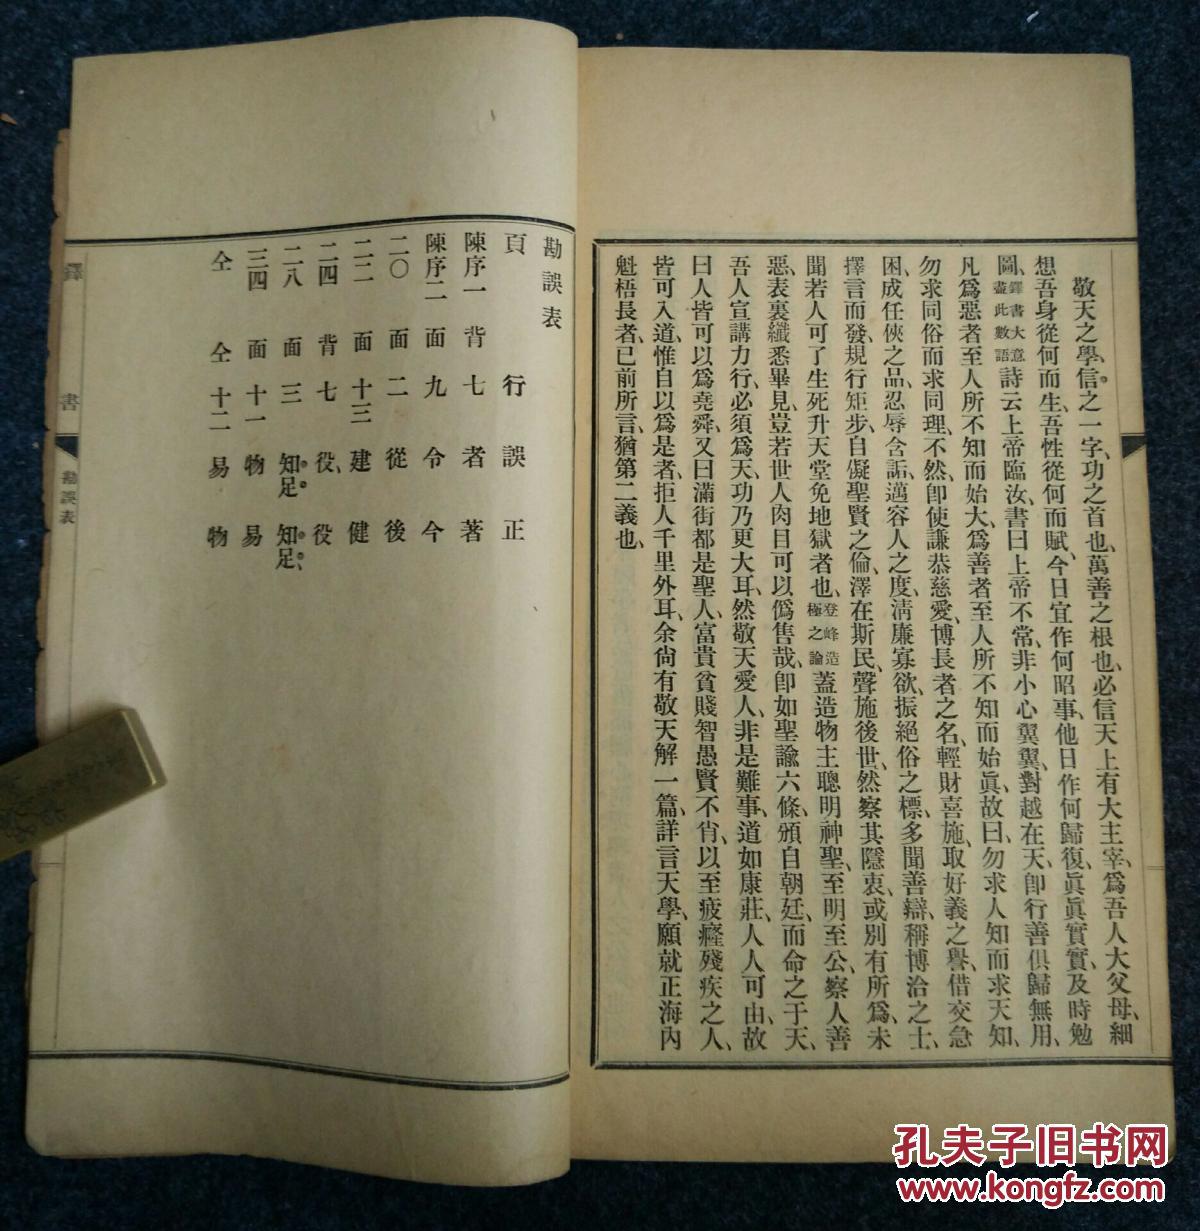 敬天之學、信之一字、功之首也、萬善之根也、必信天上有大主宰、爲吾人大父母、細
想吾身從何而生、吾性從何而賦、今日宜作何昭事、他日作何歸復、眞眞實實、及時勉
圖、鐸書大意盡此數語詩云上帝臨汝、書曰上帝不常、非小心翼翼、對越在天、卽行善俱歸無用、
凡爲惡者至人所不知而始大、爲善者至人所不知而始眞、故曰、勿求人知而求天知、
勿求同俗而求同理、不然、卽使謙恭慈愛、博長者之名、輕財喜施、取好義之譽、借交急
困、成任俠之品、忍辱含詬、邁容人之度、淸廉寡欲、振絕俗之標、多聞善辯、稱博洽之士、
擇言而發、規行矩步、自儗聖賢之倫、澤在斯民、聲施後世、然察其隱衷、或別有所爲、未
聞若人可了生死升天堂免地獄者也、登峰造極之論蓋造物主聰明神聖、至明至公、察人善
惡、表裏纖悉畢見、豈若世人肉目可以僞售哉、卽如聖諭六條、頒自朝廷、而命之于天、
吾人宣講力行、必須爲天、功乃更大耳、然敬天愛人、非是難事、道如康莊、人人可由、故
曰人皆可以爲堯舜、又曰滿街都是聖人、富貴貧賤智愚賢不肖、以至疲癃殘疾之人、
皆可入道、惟自以爲是者、拒人千里外耳、余尙有敬天解一篇、詳言天學、願就正海內
魁梧長者、已前所言、猶第二義也、
勘誤表
頁 行 誤 正
陳序一 背 七 者 著
陳序二 面 九 令 今
二〇 面 二 從 後
二二 面 十三 建 健
二四 背 七 役、 役
二八 面 三 知足。 知足、
三四 面 十一 物 易
仝 仝 十二 易 物
鐸書
勘誤表
孔夫子旧书网
www.kongfz.com